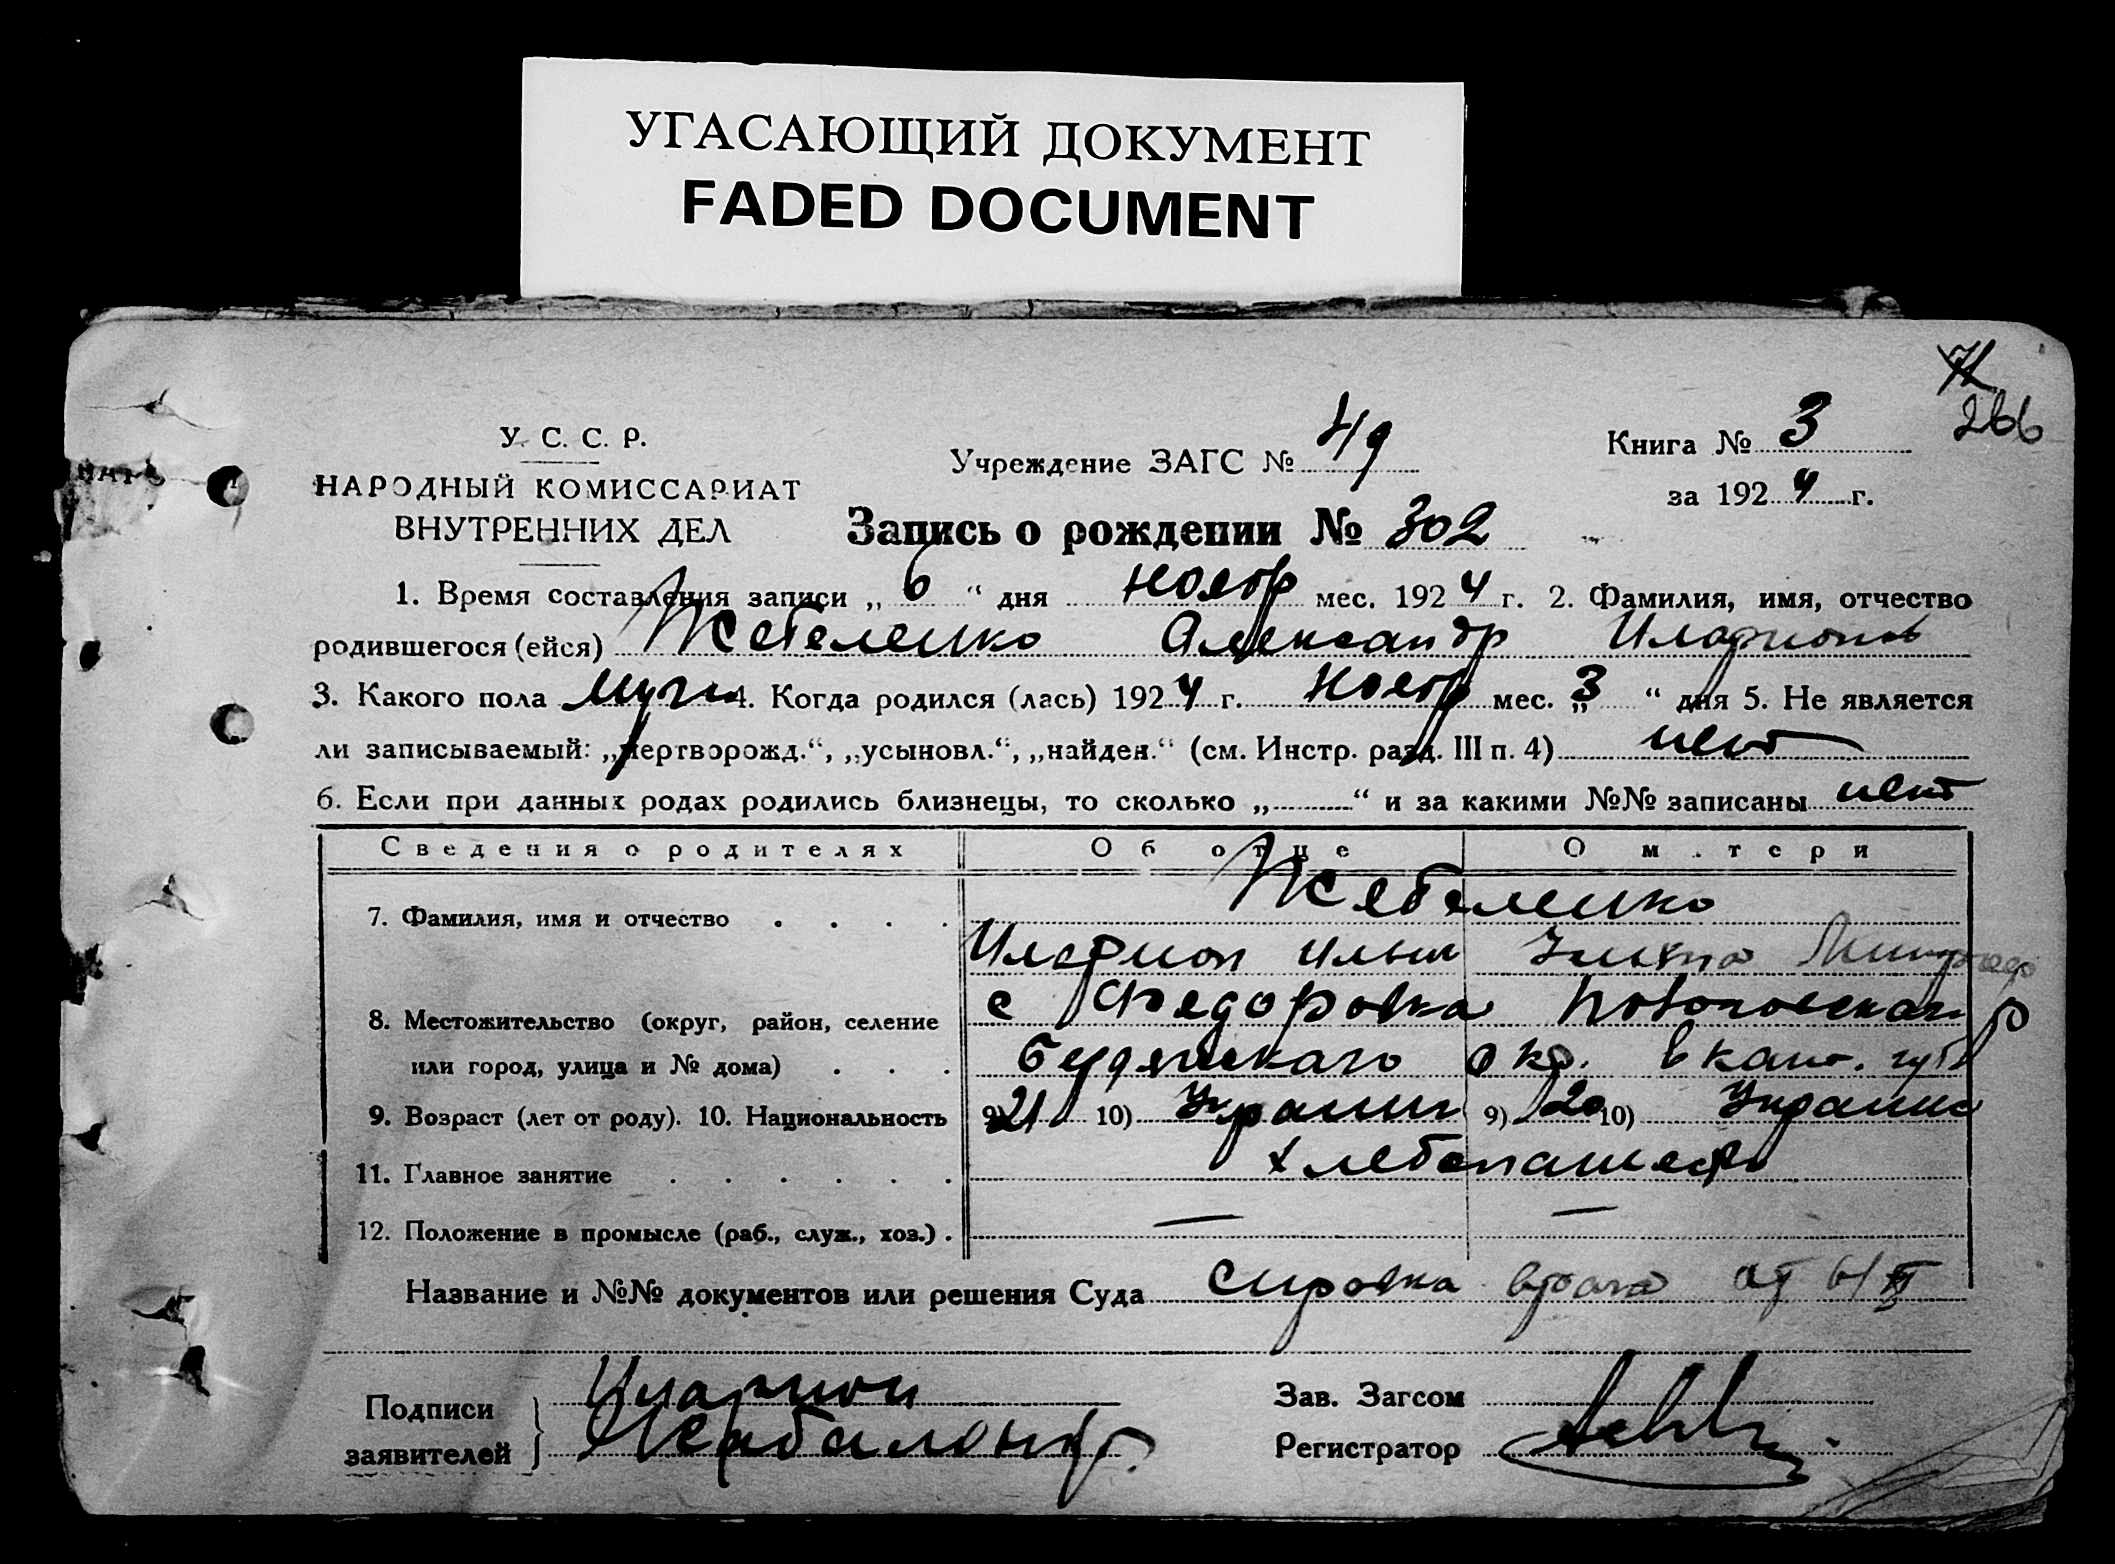 УГАСАЮЩИЙ ДОКУМЕНТ
FADED DOCUMENT
266
У. С. С. Р.
НАРОДНЫЙ КОМИССАРИАТ
ВНУТРЕННИХ ДЕЛ
Учреждение ЗАГС № 49
Книга № 3
за 1924 г.
Запись о рождении № 302
1. Время составления записи „ 6 “ дня ноябр мес. 1924 г. 2. Фамилия, имя, отчество
родившегося (ейся) Жебеленко Александр Иларионов
3. Какого пола муж 4. Когда родился (лась) 1924 г. ноябр мес. „ 3 “ дня 5. Не является
ли записываемый: „мертворожд.“, „усыновл.“, „найден.“ (см. Инстр. разд. III п. 4) нет
6. Если при данных родах родились близнецы, то сколько „ “ и за какими №№ записаны нет
Сведения о родителях Об отце О матери
7. Фамилия, имя и отчество Жебеленко
Иларион Ильич
8. Местожительство (округ, район, селение с Федоровка
или город, улица и № дома) окр. губ
9. Возраст (лет от роду). 10. Национальность 9) 21 10) Украин 9) 20 10) Украин
11. Главное занятие хлебопашество
12. Положение в промысле (раб., служ., хоз.) — —
Название и №№ документов или решения Суда справка врача от
Подписи
заявителей
Иларион
Зав. Загсом
Регистратор